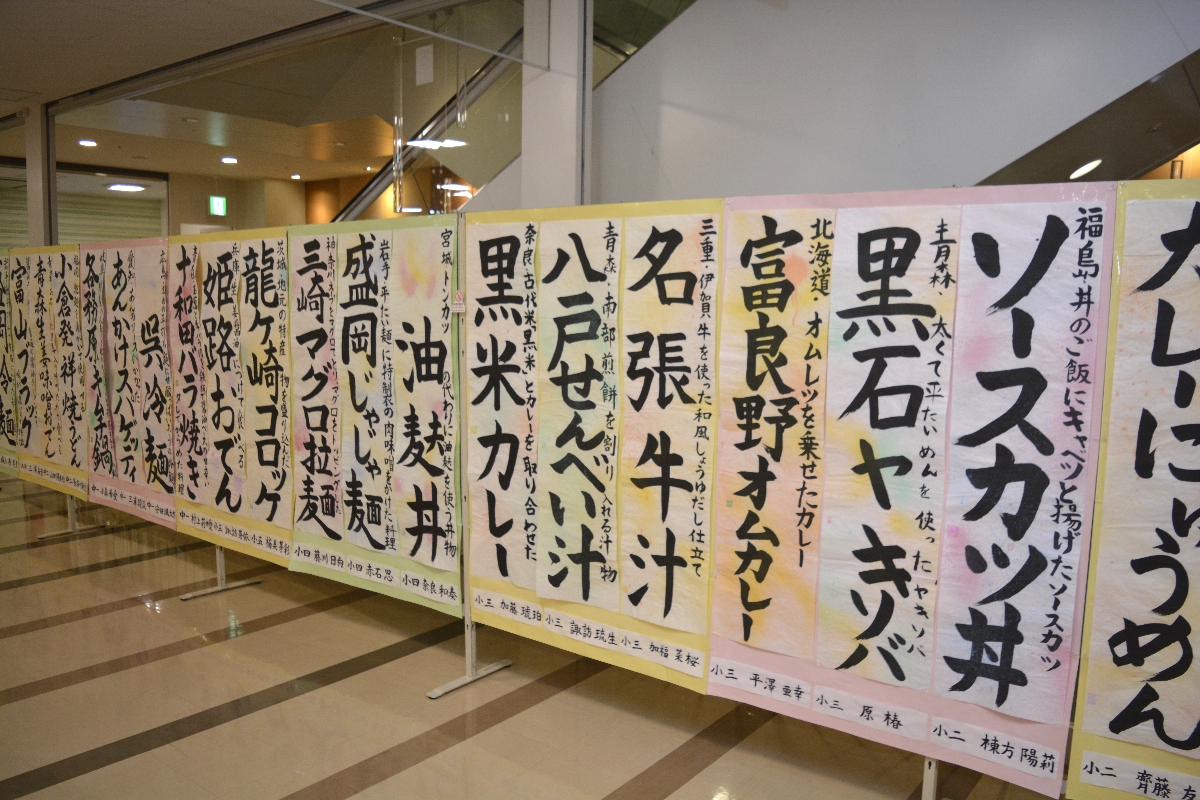 大レ
にゅうめん
小二 齊藤 友
福島 丼のご飯にキャベツと揚げたソースカツ
ソースカツ丼
小二 棟方 陽莉
青森・太くて平たいめんを使ったヤキソバ
黒石ヤキソバ
小三 原 椿
北海道・オムレツを乗せたカレー
富良野オムカレー
小三 平澤 亜幸
三重・伊賀牛を使った和風しょうゆだし仕立て
名張牛汁
小三 加福 茉桜
青森・南部煎餅を割り入れる汁物
八戸せんべい汁
小三 諏訪 琉生
奈良・古代米黒米とカレーを取り合わせた
黒米カレー
小三 加藤 琥珀
宮城 トンカツの代わりに油麩を使う丼物
油麸丼
小四 奈良 和奏
岩手・平たい麺に特製の肉味噌をかけた料理
盛岡じゃじゃ麺
小四 赤石
三崎マグロ拉麺
小四 藤川 日向
茨城 地元の特産
龍ケ崎コロッケ
姫路おでん
十和田バラ焼き
呉冷麺
あんかけスパゲッティ
各務原キムチ鍋
小倉発祥焼うどん
青森生姜味噌おでん
富山ブラック
冷麺